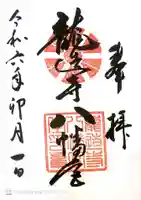 奉拝
龍造寺八幡宮
令和六年卯月一日